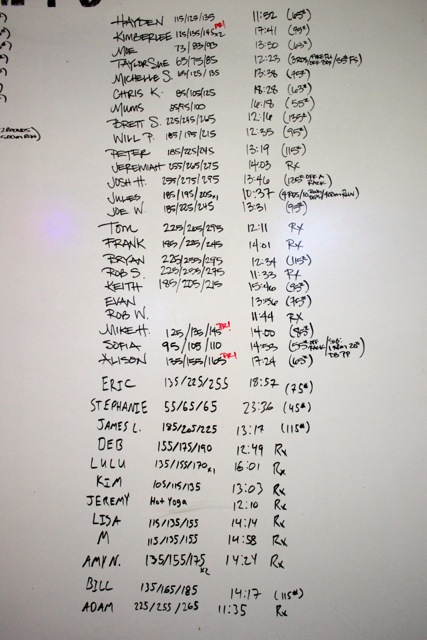 HAYDEN 115/125/135 11:52 (65#)
KIMBERLEE 125/135/145x2 PR! 17:41 (95#)
MOE 73/83/93 13:50 (63#)
TAYLOR SUE 65/75/85 12:23
MICHELLE S. 65/125/135 13:38 (75#)
CHRIS K. 85/105/125 18:28 (63#)
MUMS 85/95/100 16:18 (55#)
BRETT S. 225/245/265 12:16 (135#)
WILL P. 185/195/215 12:35 (95#)
PETER 185/225/245 13:19 (115#)
JEREMIAH 255/265/275 14:03 Rx
JOSH H. 255/275/295 13:46 (125# OFF A RACK)
JULES 185/195/205x1 10:37
JOE W. 185/225/245 13:31 (95#)
TOM 225/265/295 12:11 Rx
FRANK 185/225/245 14:01 Rx
BRYAN 225/255/295 12:34 (115#)
ROB S. 225/255/275 11:33 Rx
KEITH 185/205/215 15:46 (95#)
EVAN 13:56 (75#)
ROB W. 11:44 Rx
MIKE H. 125/135/145 PR! 14:00 (85#)
SOFIA 95/105/110 14:53 (55# OFF RACK
ALISON 135/155/165 PR! 17:24 (65#)
ERIC 135/225/255 18:57 (75#)
STEPHANIE 55/65/65 23:36 (45#)
JAMES L. 185/205/225 13:17 (115#)
DEB 155/175/190 12:49 Rx
LULU 135/155/170x1 16:01 Rx
KIM 105/115/135 13:03 Rx
JEREMY Hot Yoga 12:10 Rx
LISA 115/135/155 14:14 Rx
M 115/135/155 14:58 Rx
AMY N. 135/155/175x2 14:24 Rx
BILL 135/165/185 14:17 (115#)
ADAM 225/255/265 11:35 Rx